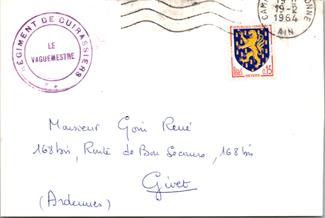 RÉGIMENT DE CUIRASSIERS
LE
VAGUEMESTRE
19-2
1964
AIN
0,15
Monsieur Gorin René
168 bis, Route de Bon Secours, 168 bis
Givet
(Ardennes)